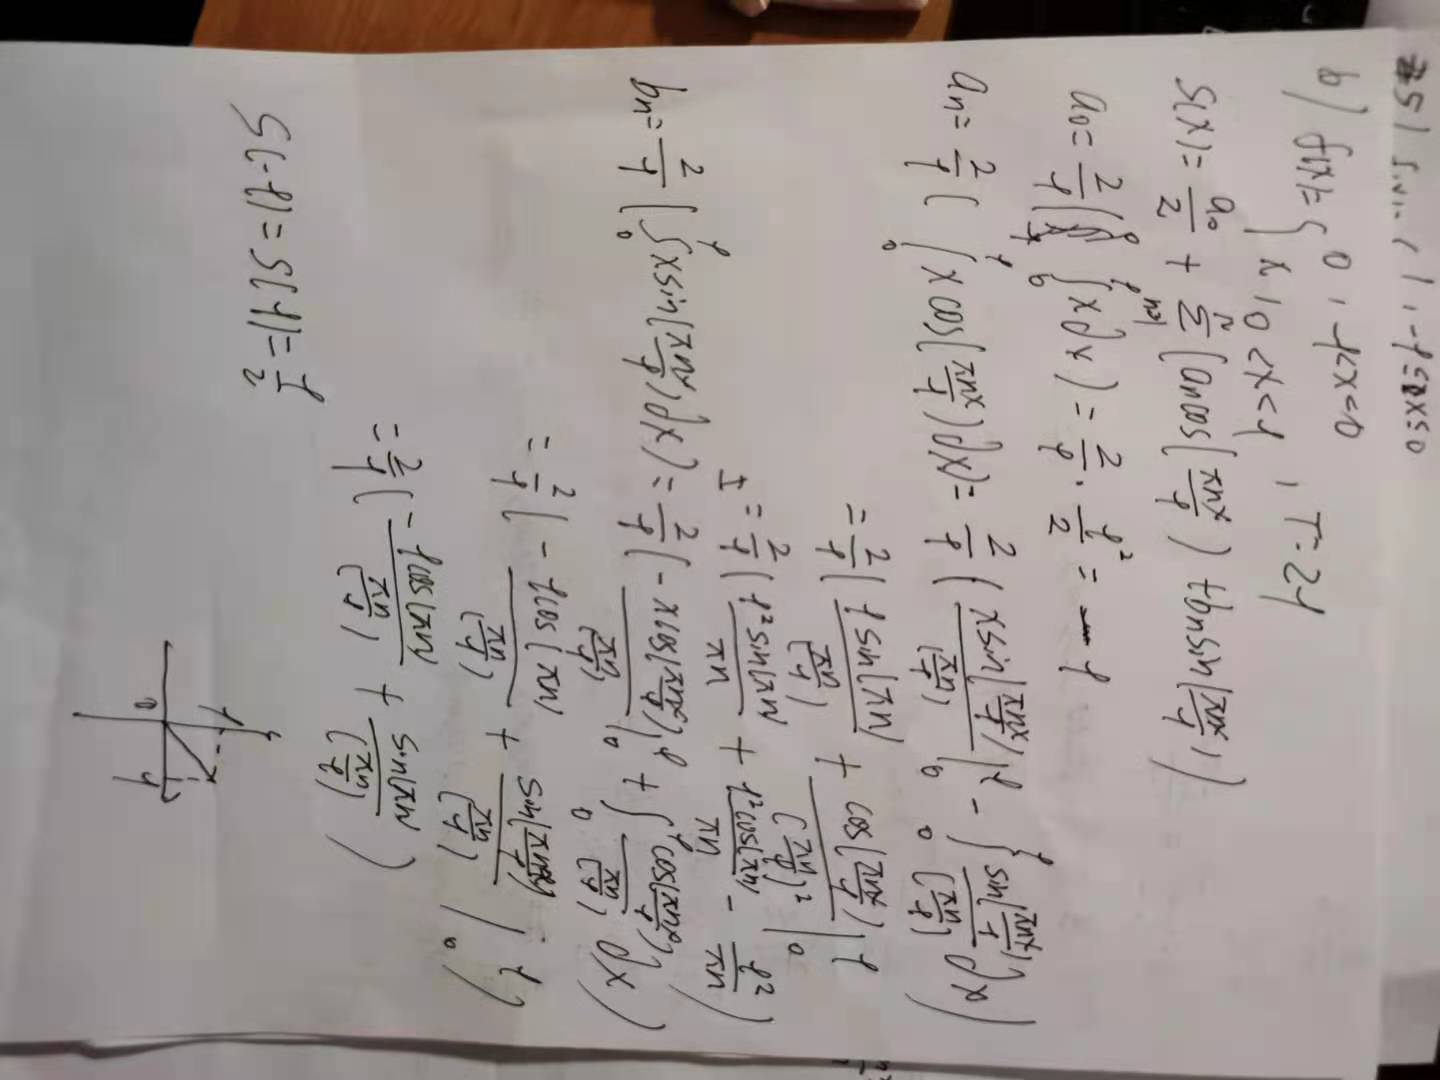 51 sin( ), -l ≤ x ≤ 0
b) f(x) = { 0, -l < x < 0
x, 0 < x < l , T = 2l
S(x) = a₀/2 + Σ_{n=1}^{n} (aₙcos(πnx/l) + bₙsin(πnx/l))
a₀ = 2/l (∫₀^l x dx) = 2/l · l²/2 = l
aₙ = 2/l (∫₀^l x cos(πnx/l) dx) = 2/l (x sin(πnx/l)/(πn/l) |₀^l - ∫₀^l sin(πnx/l)/(πn/l) dx)
= 2/l (l sin(πn)/(πn/l) + cos(πnx/l)/(πn/l)² |₀^l
= 2/l (l² sin(πn)/πn + l² cos(πn)/πn - l²/πn)
bₙ = 2/l (∫₀^l x sin(πnx/l) dx) = 2/l (- x cos(πnx/l)/(πn/l) |₀^l + ∫₀^l cos(πnx/l)/(πn/l) dx)
= 2/l (- l cos(πn)/(πn/l) + sin(πnx/l)/(πn/l) |₀^l)
= 2/l (- l cos(πn)/(πn/l) + sin(πn)/(πn/l))
S(-l) = S(l) = l/2
l
0 l